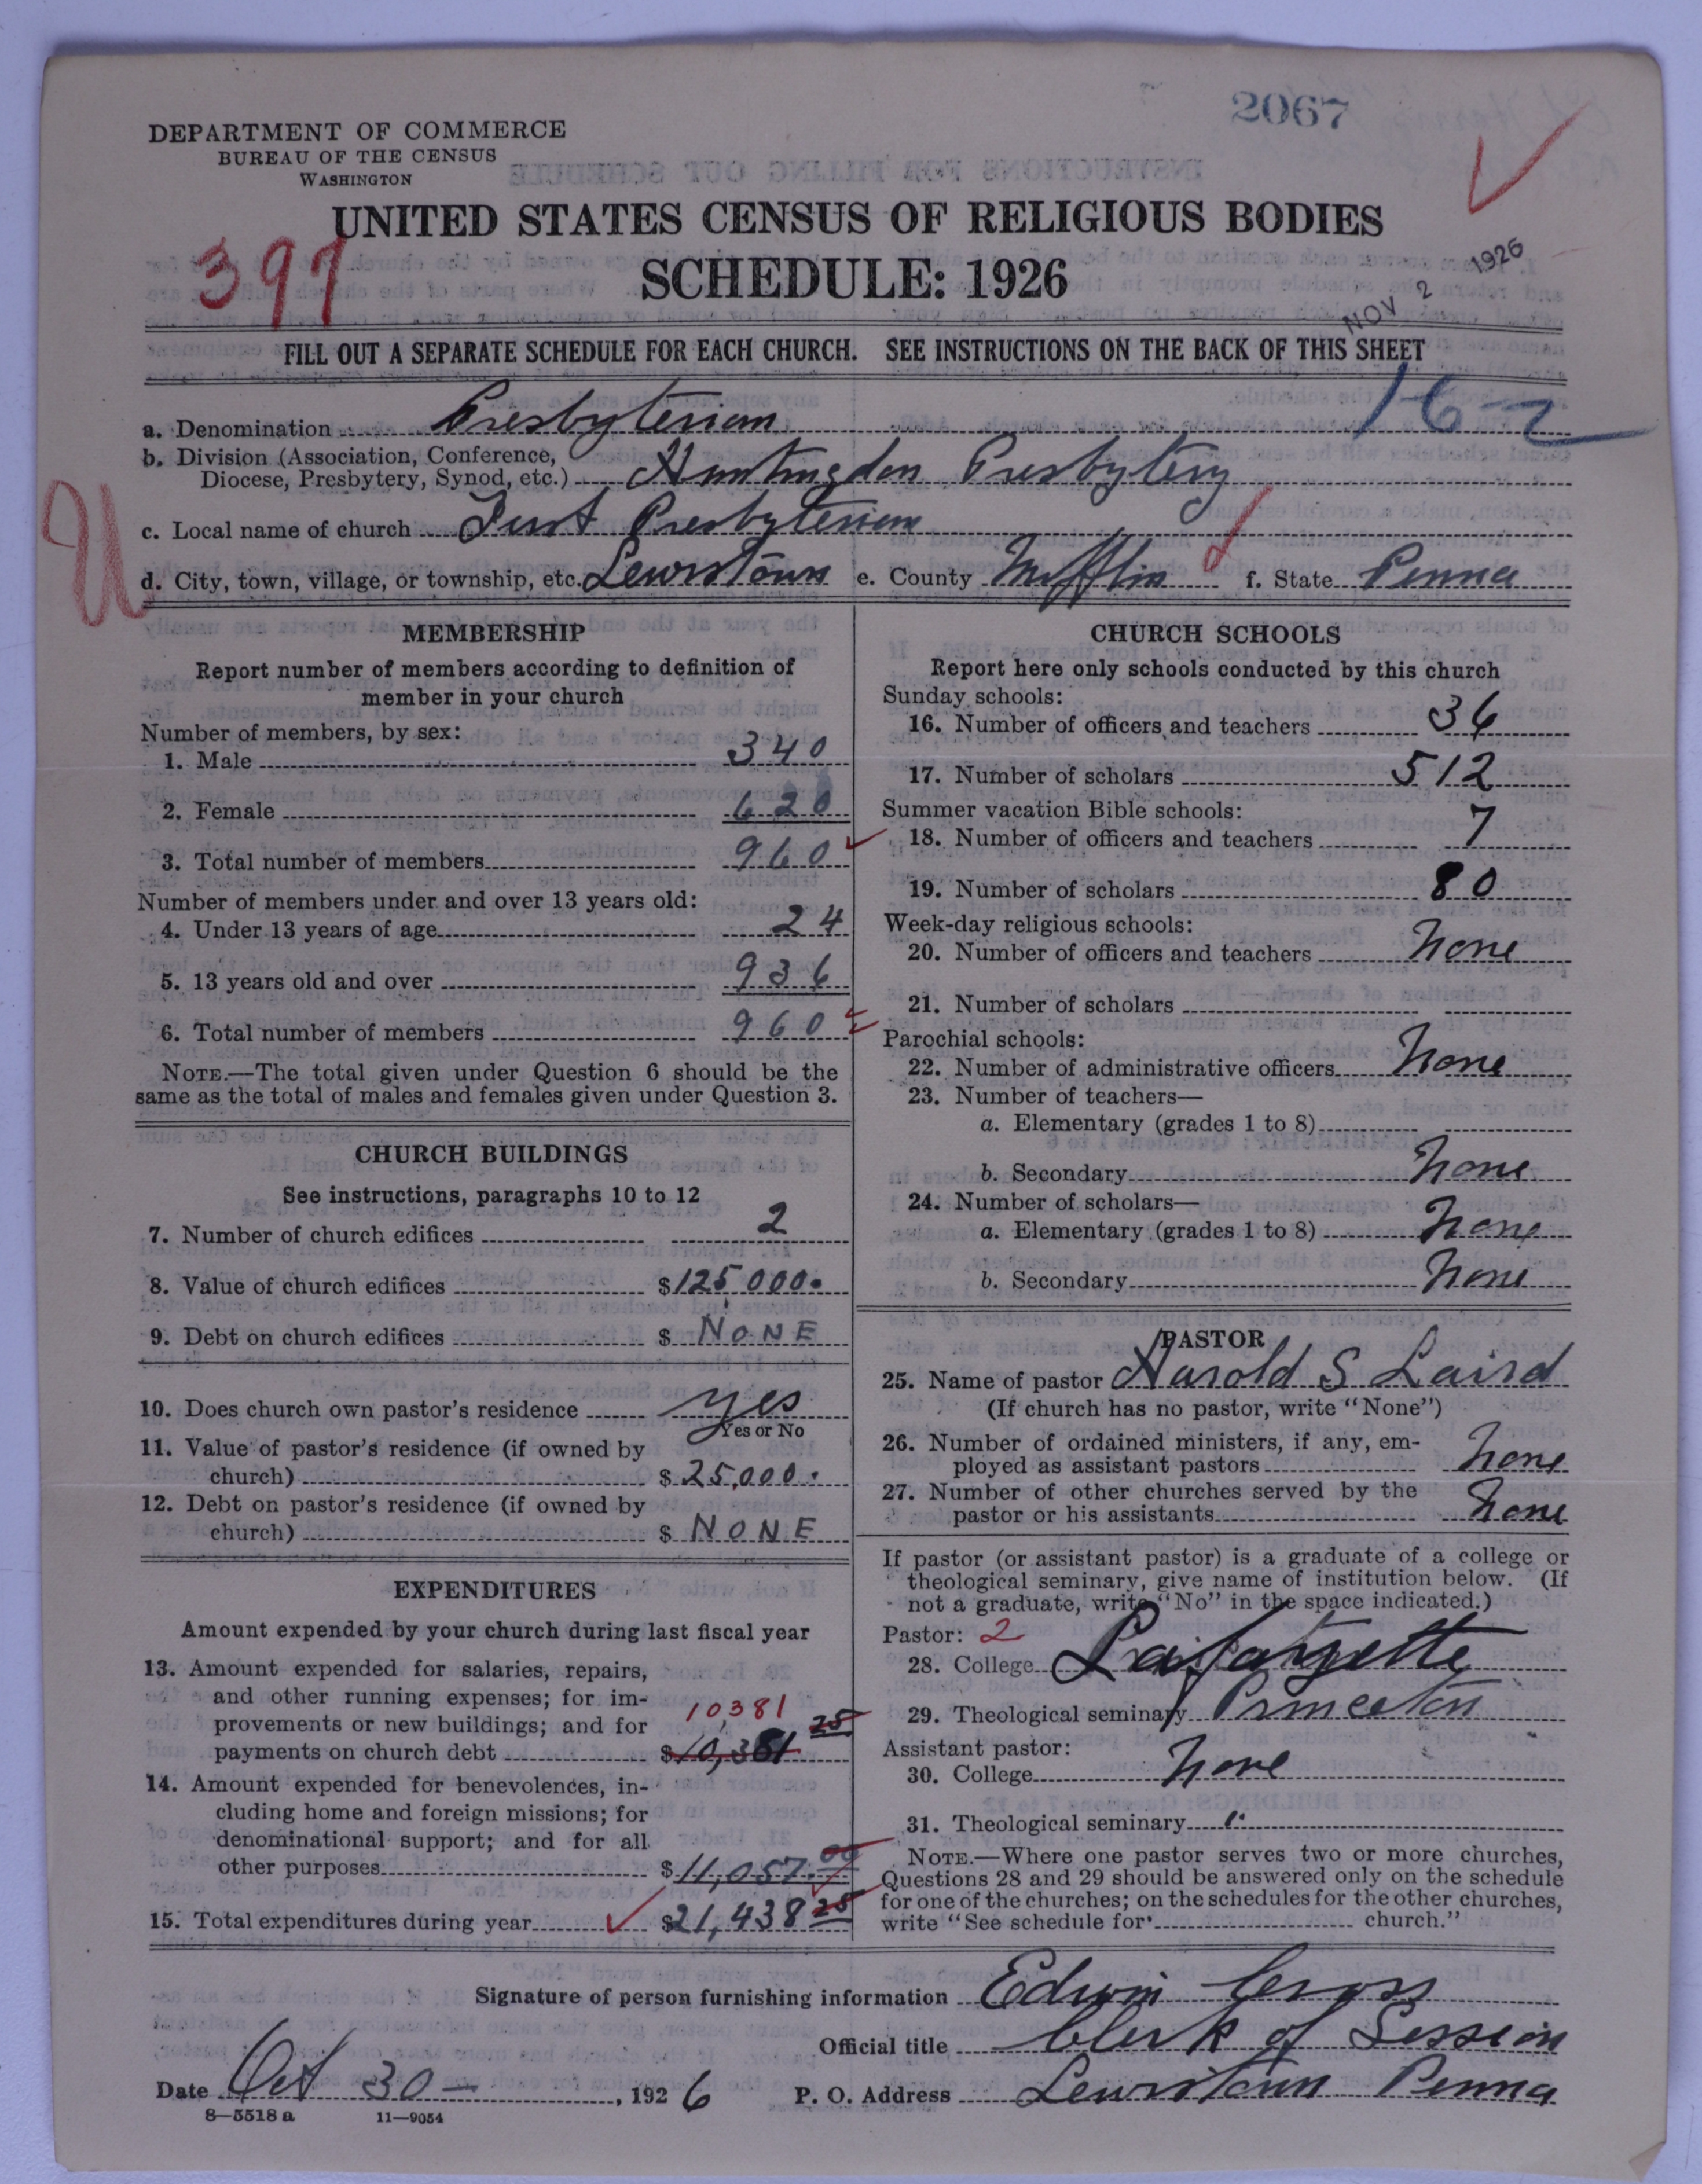 2067
DEPARTMENT OF COMMERCE
BUREAU OF THE CENSUS
WASHINGTON
UNITED STATES CENSUS OF RELIGIOUS BODIES
397
SCHEDULE: 1926
NOV 2 1926
FILL OUT A SEPARATE SCHEDULE FOR EACH CHURCH. SEE INSTRUCTIONS ON THE BACK OF THIS SHEET
16-2
a. Denomination Presbyterian
b. Division (Association, Conference,
Diocese, Presbytery, Synod, etc.) Huntingdon Presbytery
U
c. Local name of church First Presbyterian
d. City, town, village, or township, etc. Lewistown e. County Mifflin f. State Penna
MEMBERSHIP
Report number of members according to definition of
member in your church
Number of members, by sex:
1. Male 340
2. Female 620
3. Total number of members 960
Number of members under and over 13 years old:
4. Under 13 years of age 24
5. 13 years old and over 936
6. Total number of members 960
NOTE.—The total given under Question 6 should be the
same as the total of males and females given under Question 3.
CHURCH BUILDINGS
See instructions, paragraphs 10 to 12
7. Number of church edifices 2
8. Value of church edifices $125,000.
9. Debt on church edifices $ NONE
10. Does church own pastor's residence yes
Yes or No
11. Value of pastor's residence (if owned by
church) $25,000.
12. Debt on pastor's residence (if owned by
church) $ NONE
EXPENDITURES
Amount expended by your church during last fiscal year
13. Amount expended for salaries, repairs,
and other running expenses; for im-
provements or new buildings; and for 10381
payments on church debt $10,381 25
14. Amount expended for benevolences, in-
cluding home and foreign missions; for
denominational support; and for all
other purposes $11,057.00
15. Total expenditures during year $21,438 25
CHURCH SCHOOLS
Report here only schools conducted by this church
Sunday schools:
16. Number of officers and teachers 36
17. Number of scholars 512
Summer vacation Bible schools:
18. Number of officers and teachers 7
19. Number of scholars 80
Week-day religious schools:
20. Number of officers and teachers None
21. Number of scholars
Parochial schools:
22. Number of administrative officers None
23. Number of teachers—
a. Elementary (grades 1 to 8)
b. Secondary None
24. Number of scholars—
a. Elementary (grades 1 to 8) None
b. Secondary None
PASTOR
25. Name of pastor Harold S Laird
(If church has no pastor, write "None")
26. Number of ordained ministers, if any, em-
ployed as assistant pastors None
27. Number of other churches served by the
pastor or his assistants None
If pastor (or assistant pastor) is a graduate of a college or
theological seminary, give name of institution below. (If
not a graduate, write "No" in the space indicated.)
Pastor: 2
28. College Lafayette
29. Theological seminary Princeton
Assistant pastor:
30. College None
31. Theological seminary "
NOTE.—Where one pastor serves two or more churches,
Questions 28 and 29 should be answered only on the schedule
for one of the churches; on the schedules for the other churches,
write "See schedule for church."
Signature of person furnishing information Edwin Gross
Official title Clerk of Session
Date Oct 30 — , 1926 P. O. Address Lewistown Penna
8—5518 a 11—9054